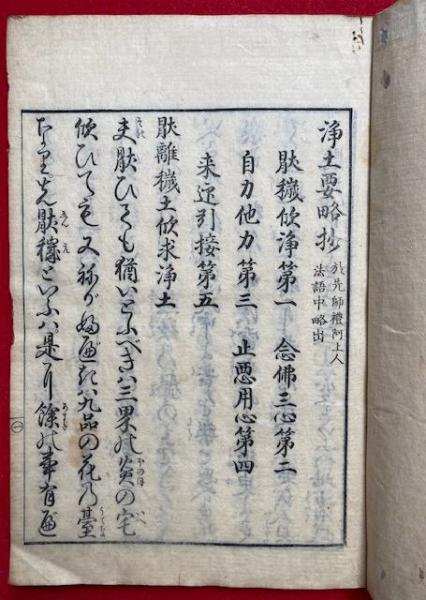 浄土要略抄 於先師禮阿上人
法語中略出
厭穢欣浄第一 念佛三心第二
自力他力第三 止悪用心第四
来迎引接第五
厭離穢土欣求浄土
夫厭ひても猶いとふべきハ三界の宅
欣ひても又ねがふべきハ九品の花の臺
なり先厭穢といふハ是餘の事有べ